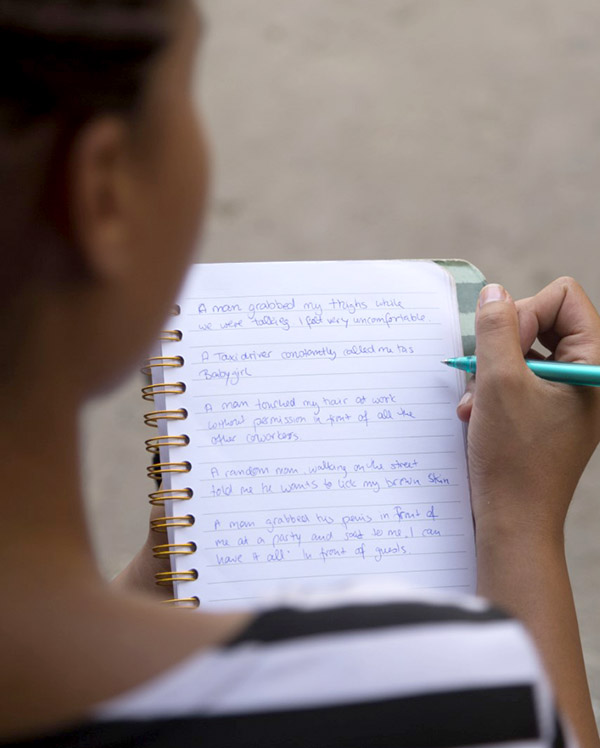 A man grabbed my thighs while
we were talking I feel very uncomfortable.
A Taxi driver constantly called me his
Babygirl
A man touched my hair at work
without permission in front of all the
other coworkers
A random man, walking on the street
told me he wants to lick my brown skin
A man grabbed his penis in front of
me at a party and said to me, I can
have it all. In front of guests.